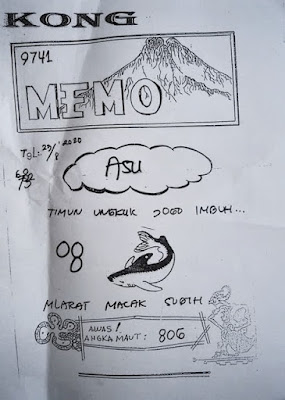 KONG
9741
MEMO
TGL: 23/8 '2020
ASU
TIMUN UNGKUK JOGO IMBUH...
08
MLARAT MACAK SUGIH
AWAS!
ANGKA MAUT: 806